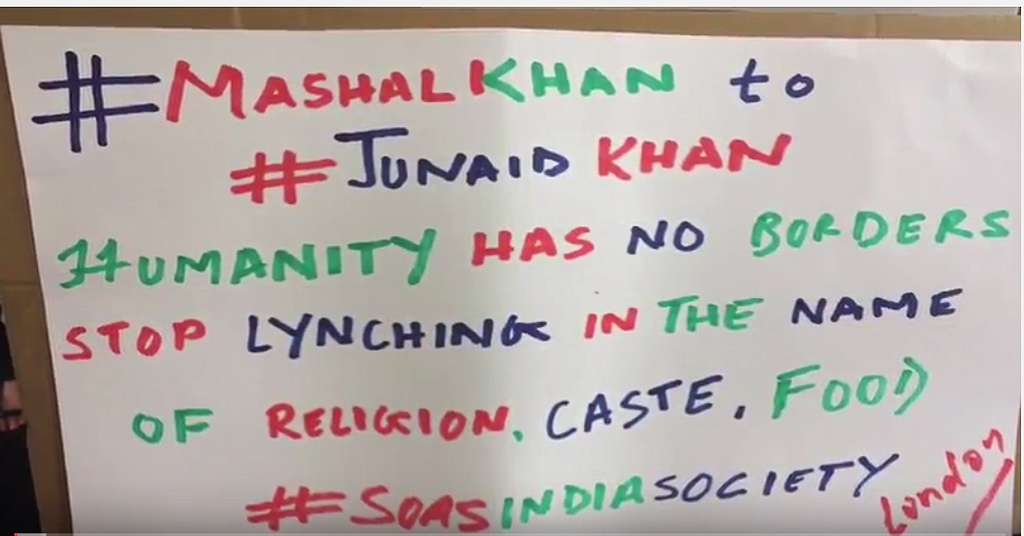 #MASHALKHAN to
#JUNAID KHAN
HUMANITY HAS NO BORDERS
STOP LYNCHING IN THE NAME
OF RELIGION, CASTE, FOOD
#SOASINDIASOCIETY
London